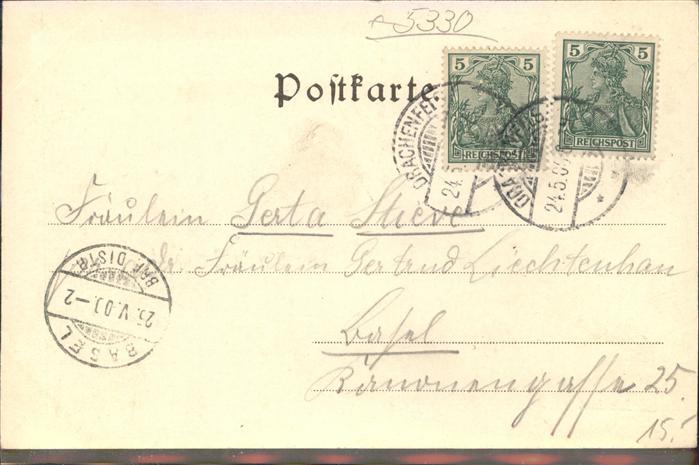 5330
Postkarte
5 5
REICHSPOST
5 5
REICHSPOST
DRACHENFELS
24.5
DRACHENFELS
24.5.0
Fräulein Gerta Stieve
Fräulein Gertrud Liechtenhan
Basel
Kanonengasse 25.
BRF. DISTR.
25.V.0 -2
BASEL
15.-